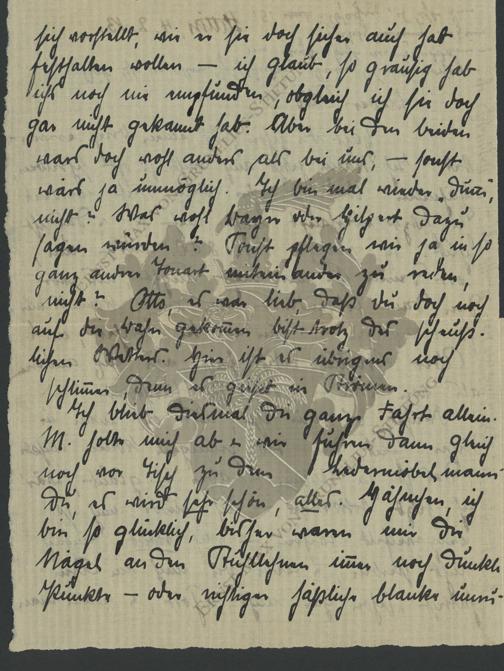 sich vorstellt, wie er sie doch sicher auch hat
festhalten wollen — ich glaub, so grausig hab
ichs noch nie empfunden, obgleich ich sie doch
gar nicht gekannt hab. Aber bei den beiden
wars doch wohl anders als bei uns, — sonst
wärs ja unmöglich. Ich bin mal wieder „dumm",
nicht? Was wohl oder Hilpert dazu
sagen würden? Sonst pflegen wir ja in so
ganz andrer Tonart miteinander zu reden,
nicht? Otto, es war lieb, daß du doch noch
auf die Bahn gekommen bist trotz des scheuß-
lichen Wetters. Hier ist es übrigens noch
schlimmer, denn es gießt in Strömen.
Ich blieb diesmal die ganze Fahrt allein.
M. holte mich ab u. wir fuhren dann gleich
noch vor Tisch zu dem Ledermöbelmann.
Du, es wird sehr schön, alles. Hänschen, ich
bin so glücklich, bisher waren mir die
Nägel an den Stuhllehnen immer noch dunkle
Punkte — oder richtiger häßliche blanke unru-